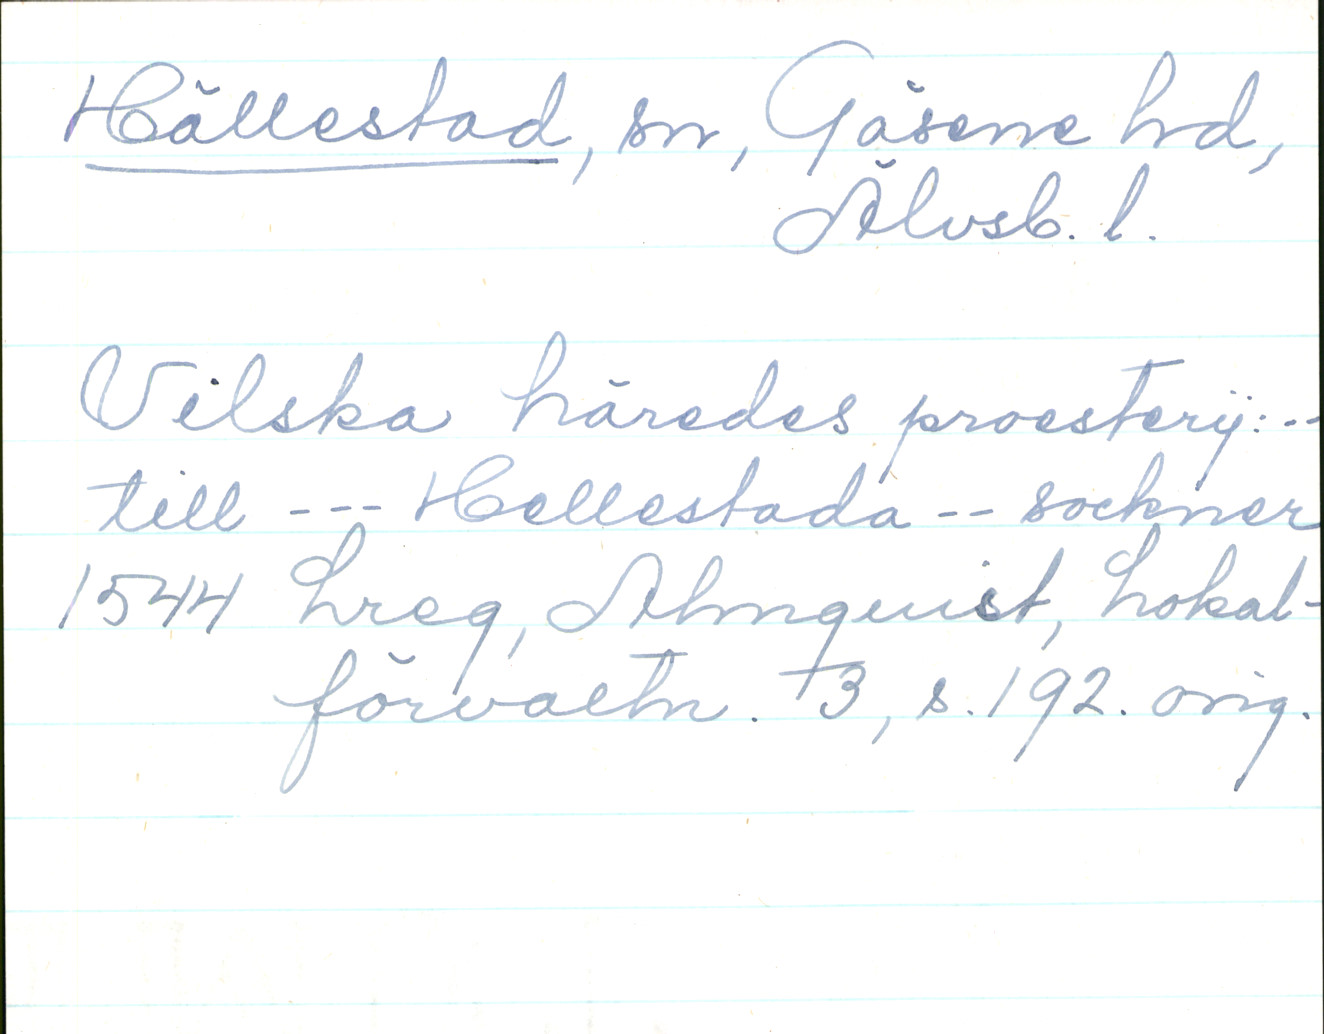 Hällestad, sn, Gäsene hd,
Älvsb. l.
Vilska häredes proesterij: --
till --- Hellestada -- sockner
1544 Lreg, Almquist, Lokal-
förvaltn. 3, s. 192. orig.